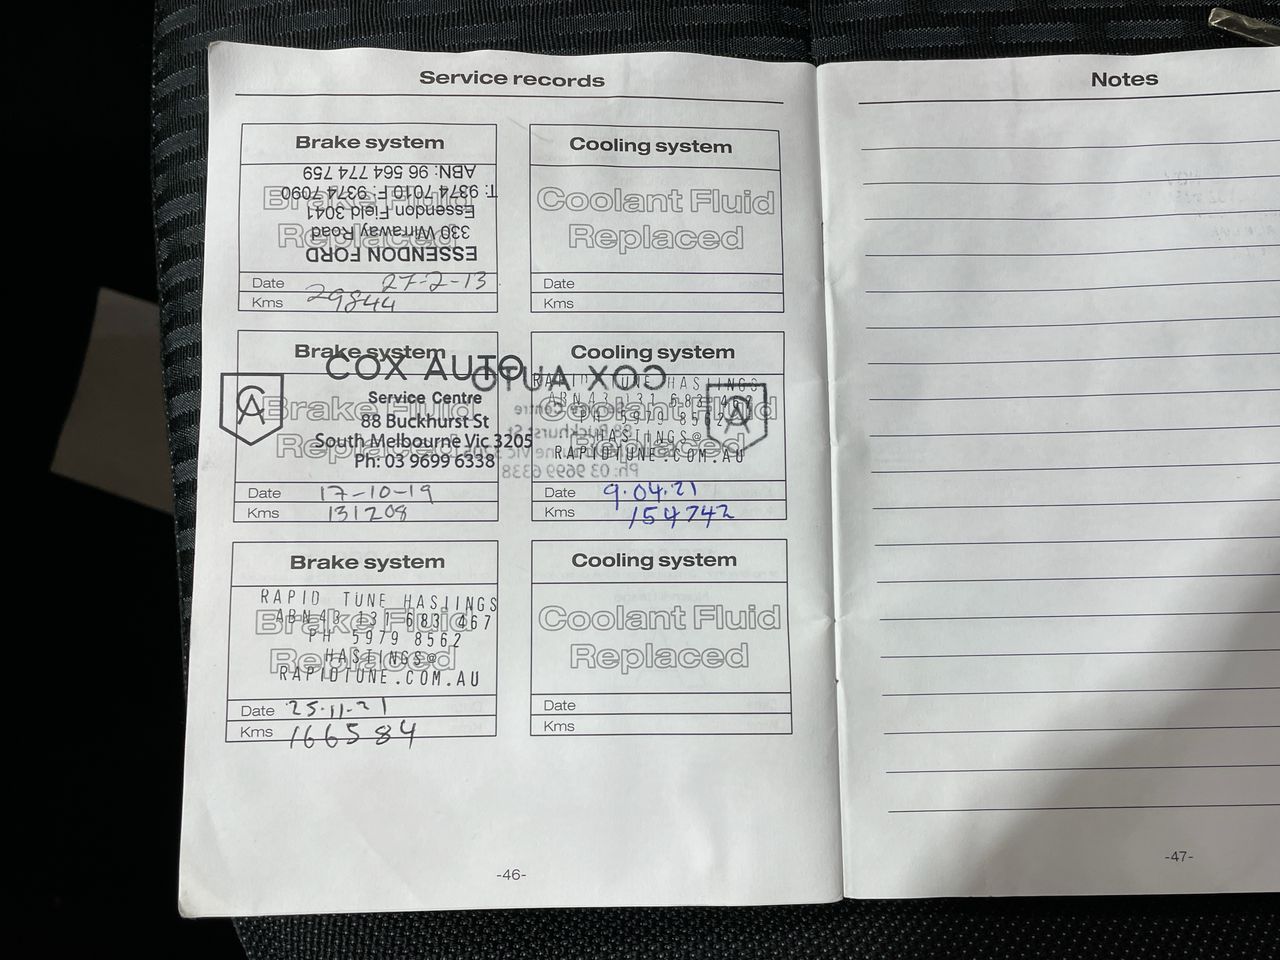 Service records
Brake system
Brake Fluid
Replaced
ESSENDON FORD
330 Wirraway Road
Essendon Field 3041
T: 9374 7010 F: 9374 7090
ABN: 96 564 774 759
Date 27-2-13
Kms 29844
Cooling system
Coolant Fluid
Replaced
Date
Kms
Brake system
Brake Fluid
Replaced
COX AUTO
CA
Service Centre
88 Buckhurst St
South Melbourne Vic 3205
Ph: 03 9699 6338
Date 17-10-19
Kms 131208
Cooling system
Coolant Fluid
Replaced
COX AUTO
Service Centre
88 Buckhurst St
Ph: 03 9699 6338
RAPID TUNE HASTINGS
ABN 43 131 683 467
PH 5979 8562
HASTINGS@
RAPIDTUNE.COM.AU
Date 9.04.21
Kms 154742
Brake system
Brake Fluid
Replaced
RAPID TUNE HASTINGS
ABN 43 131 683 467
PH 5979 8562
HASTINGS@
RAPIDTUNE.COM.AU
Date 25-11-21
Kms 166584
Cooling system
Coolant Fluid
Replaced
Date
Kms
-46-
Notes
-47-